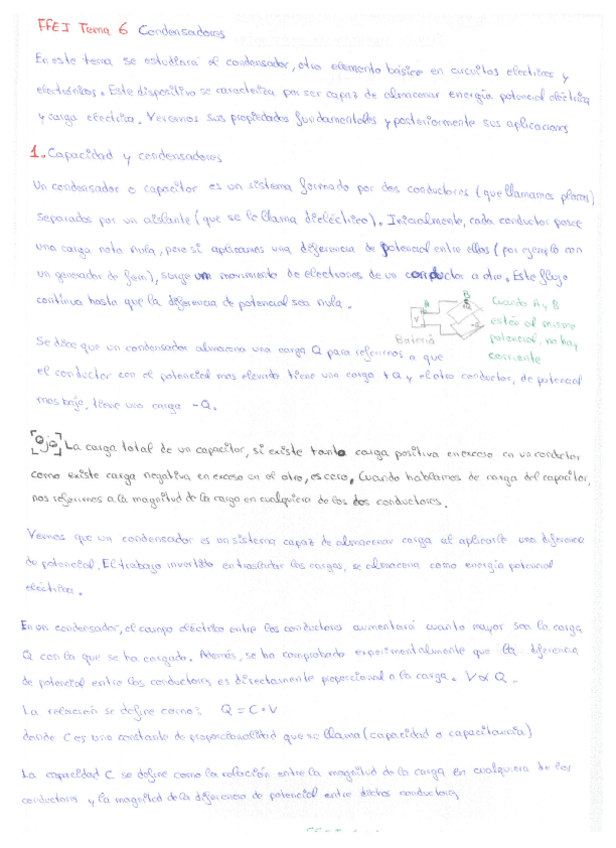 FFEI Tema 6 Condensadores
En este tema se estudiará el condensador, otro elemento básico en circuitos eléctricos y
electrónicos. Este dispositivo se caracteriza por ser capaz de almacenar energía potencial eléctrica
y carga eléctrica. Veremos sus propiedades fundamentales y posteriormente sus aplicaciones
1. Capacidad y condensadores
Un condensador o capacitor es un sistema formado por dos conductores (que llamamos placas)
separados por un aislante (que se le llama dieléctrico). Inicialmente, cada conductor posee
una carga neta nula, pero si aplicamos una diferencia de potencial entre ellos (por ejemplo con
un generador de fem), surge un movimiento de electrones de un conductor a otro. Este flujo
continua hasta que la diferencia de potencial sea nula.
A
B
V
Batería
Cuando A y B
están al mismo
potencial, no hay
corriente
Se dice que un condensador almacena una carga Q para referirnos a que
el conductor con el potencial mas elevado tiene una carga +Q y el otro conductor, de potencial
mas bajo, tiene una carga -Q.
[Ojo] La carga total de un capacitor, si existe tanta carga positiva en exceso en un conductor
como existe carga negativa en exceso en el otro, es cero. Cuando hablamos de carga del capacitor,
nos referimos a la magnitud de la carga en cualquiera de los dos conductores.
Vemos que un condensador es un sistema capaz de almacenar carga al aplicarle una diferencia
de potencial. El trabajo invertido en trasladar las cargas, se almacena como energía potencial
eléctrica.
En un condensador, el campo eléctrico entre los conductores aumentará cuanto mayor sea la carga
Q con la que se ha cargado. Además, se ha comprobado experimentalmente que la diferencia
de potencial entre los conductores es directamente proporcional a la carga. V ∝ Q.
La relación se define como: Q = C · V
donde C es una constante de proporcionalidad que se llama (capacidad o capacitancia)
La capacidad C se define como la relación entre la magnitud de la carga en cualquiera de los
conductores y la magnitud de la diferencia de potencial entre dichos conductores